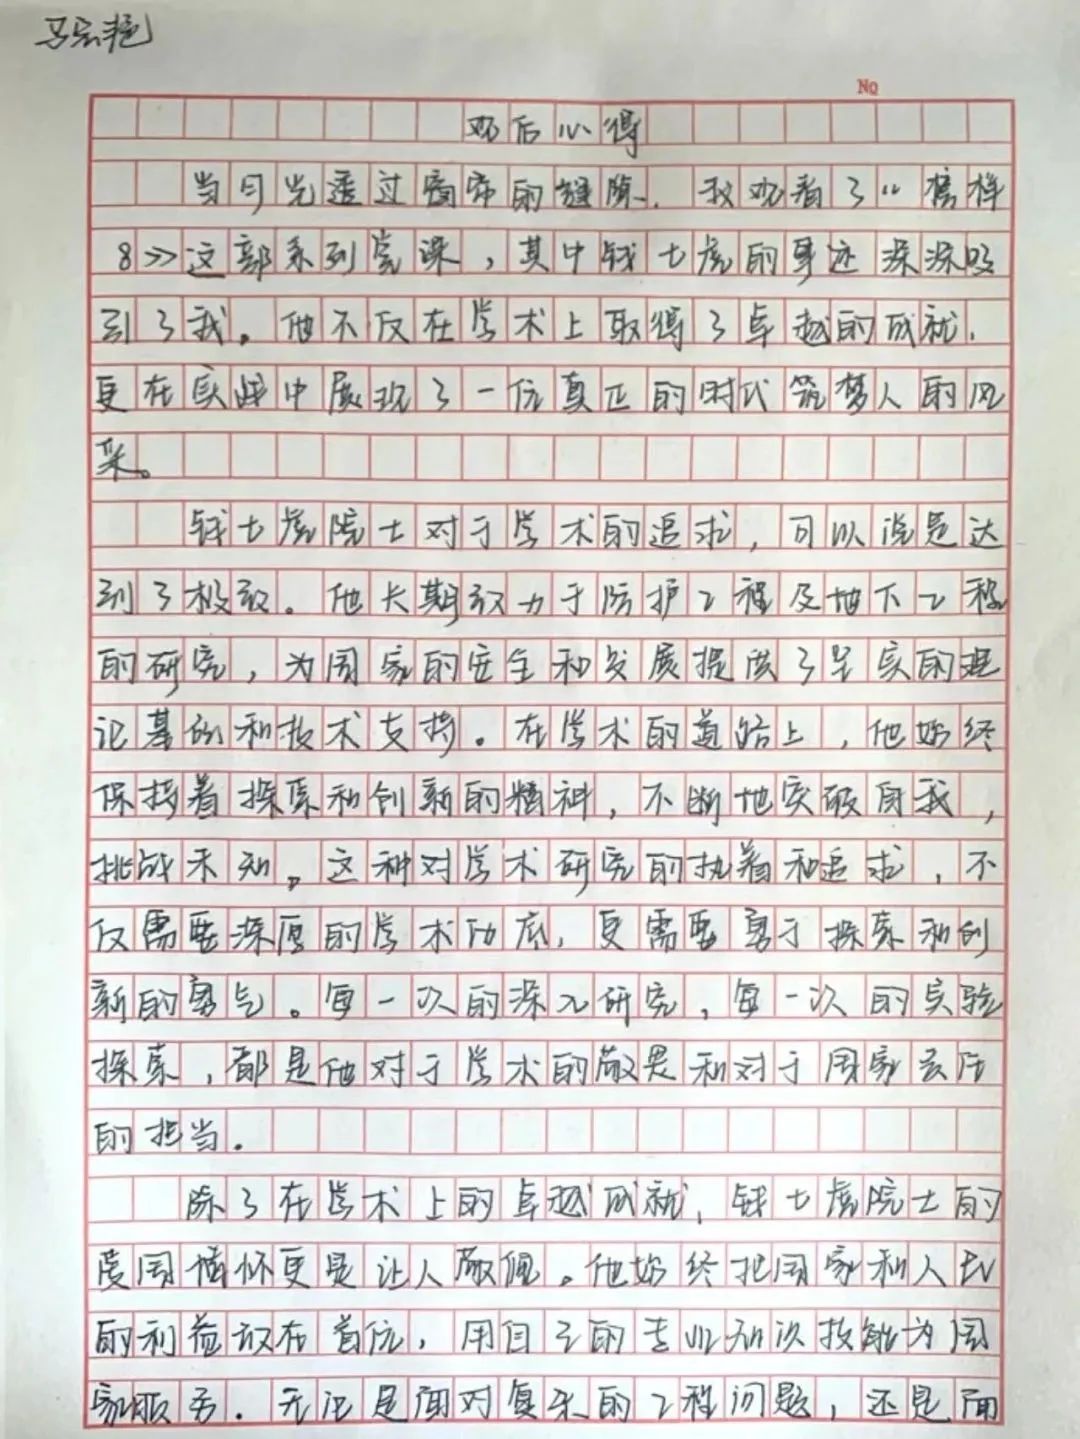 No
观后心得
当日光透过窗帘的缝隙，我观看了“榜样
8》这部系列党课，其中钱七虎的事迹深深吸
引了我。他不仅在学术上取得了卓越的成就，
更在实践中展现了一位真正的时代筑梦人的风
采。
钱七虎院士对于学术的追求，可以说是达
到了极致。他长期致力于防护工程及地下工程
的研究，为国家的安全和发展提供了坚实的理
论基础和技术支持。在学术的道路上，他始终
保持着探索和创新的精神，不断地突破自我，
挑战未知。这种对学术研究的执着和追求，不
仅需要深厚的学术功底，更需要勇于探索和创
新的勇气。每一次的深入研究，每一次的实验
探索，都是他对于学术的敬畏和对于国家责任
的担当。
除了在学术上的卓越成就，钱七虎院士的
爱国情怀更是让人敬佩。他始终把国家和人民
的利益放在首位，用自己的专业知识技能为国
家服务。无论是面对复杂的工程问题，还是面